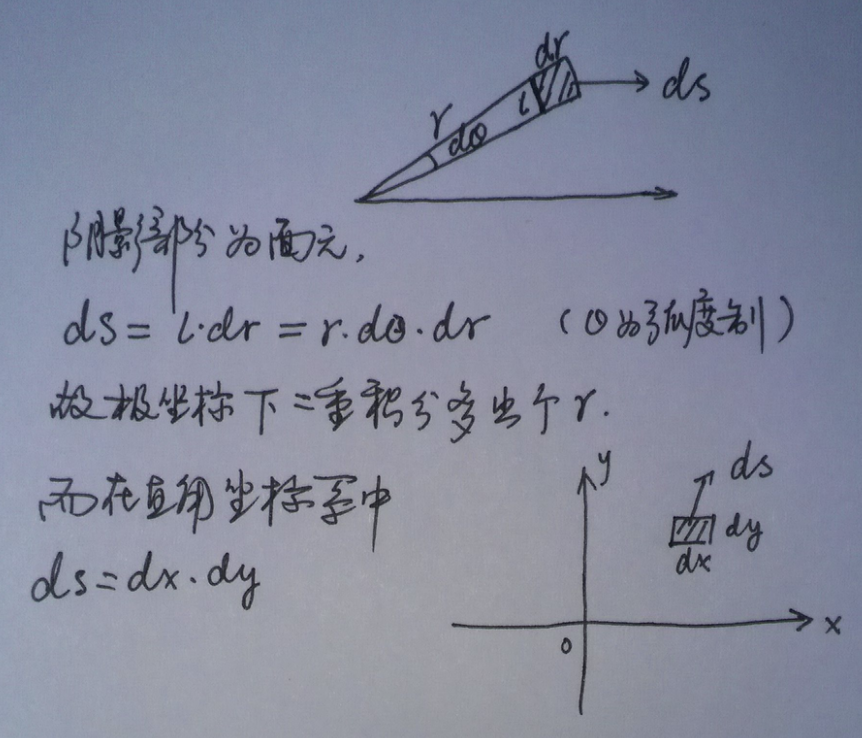 dr
r
l
dθ
ds
阴影部分为面元,
ds = l·dr = r·dθ·dr (θ为弧度制)
故极坐标下二重积分多出个r.
而在直角坐标系中
ds = dx·dy
y
ds
dy
dx
x
0